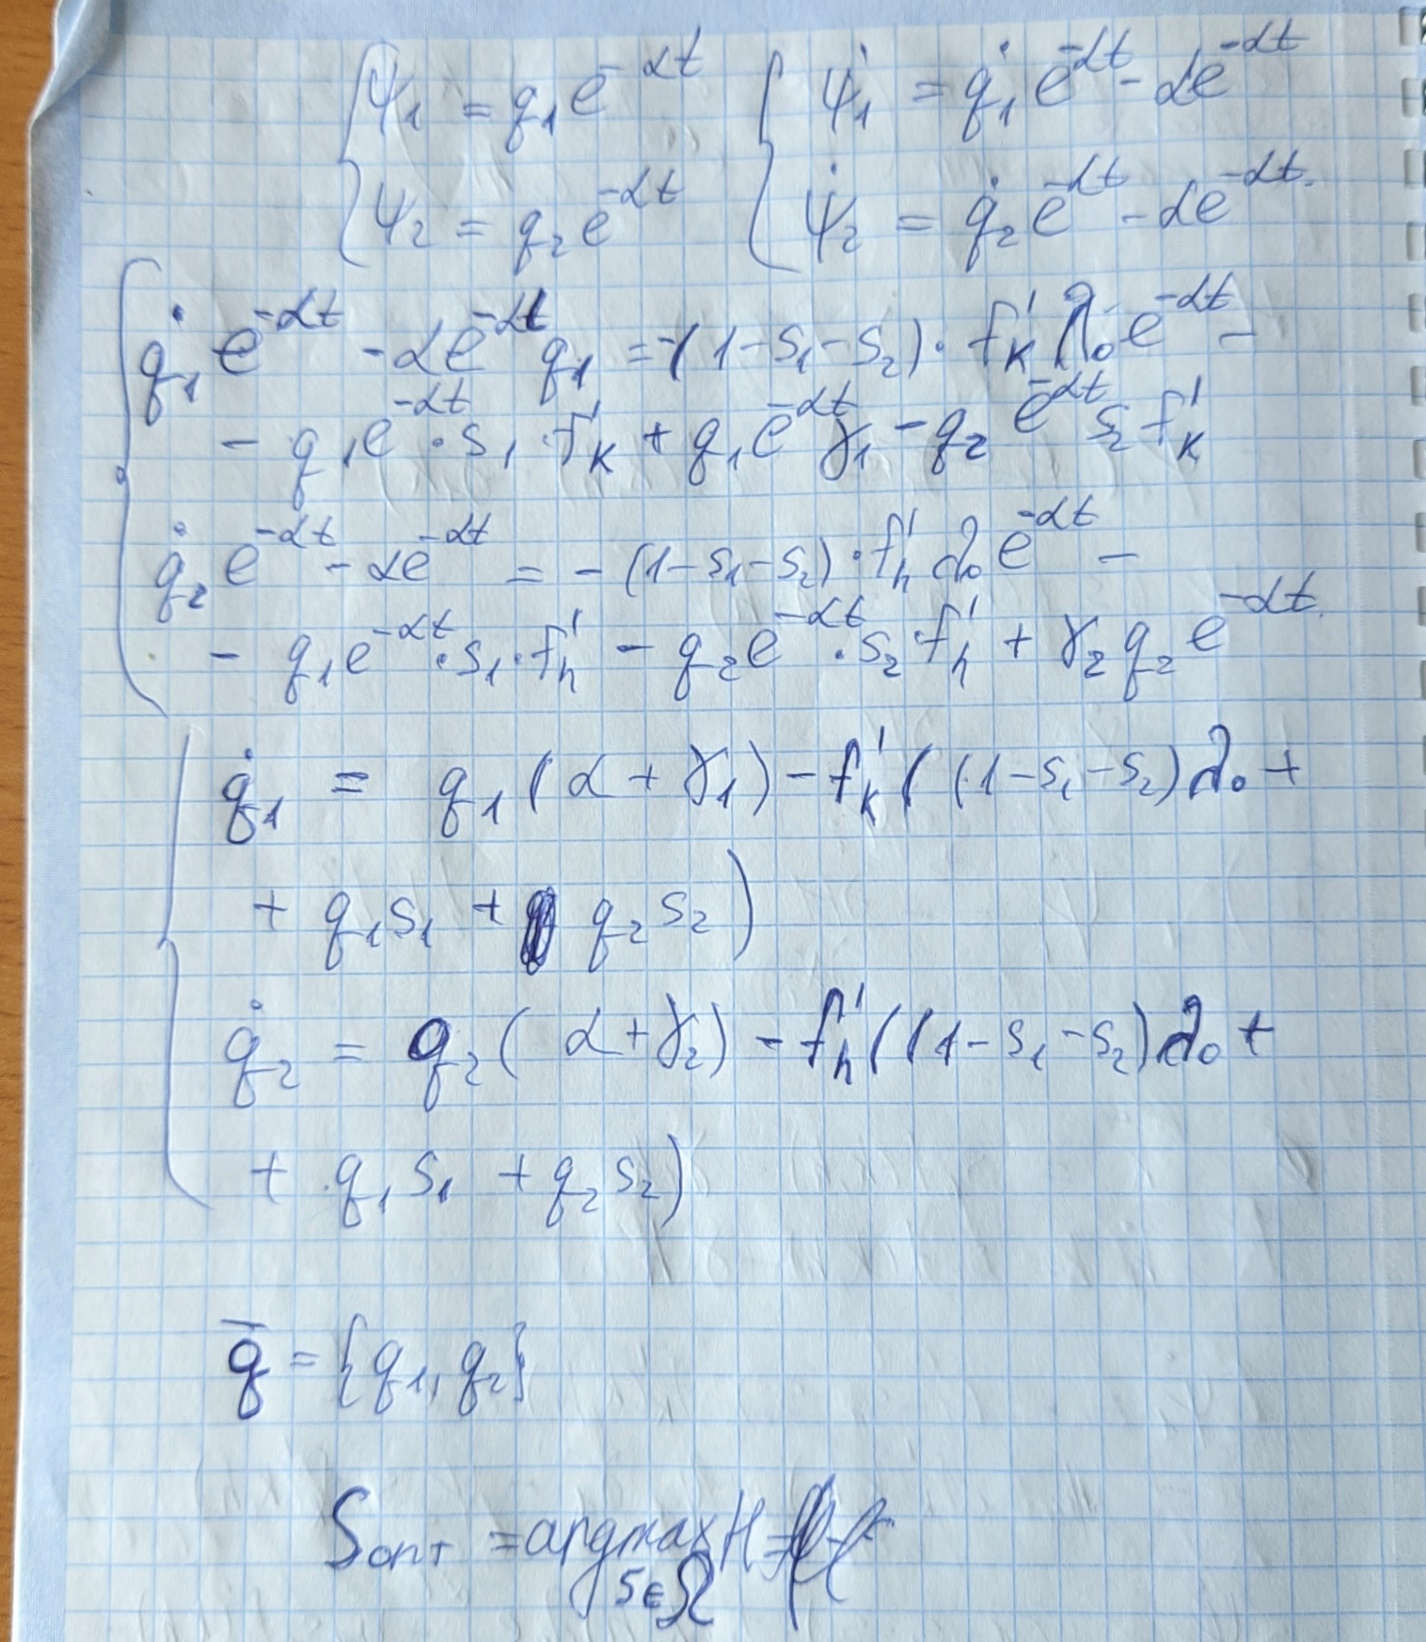 ψ₁ = q₁e^{-αt} ψ̇₁ = q̇₁e^{-αt} - αe^{-αt}
ψ₂ = q₂e^{-αt} ψ̇₂ = q̇₂e^{-αt} - αe^{-αt}
q̇₁e^{-αt} - αe^{-αt}q₁ = -(1-s₁-s₂)·f'ₖλ₀e^{-αt} -
- q₁e^{-αt}·s₁·f'ₖ + q₁e^{-αt}γ₁ - q₂e^{-αt}s₂f'ₖ
q̇₂e^{-αt} - αe^{-αt} = -(1-s₁-s₂)·f'ₕλ₀e^{-αt} -
- q₁e^{-αt}·s₁·f'ₕ - q₂e^{-αt}·s₂·f'ₕ + γ₂q₂e^{-αt}
q̇₁ = q₁(α+γ₁) - f'ₖ((1-s₁-s₂)λ₀ +
+ q₁s₁ + q₂s₂)
q̇₂ = q₂(α+γ₂) - f'ₕ((1-s₁-s₂)λ₀ +
+ q₁s₁ + q₂s₂)
q̄ = {q₁, q₂}
Sопт = argmax H =
s∈Ω